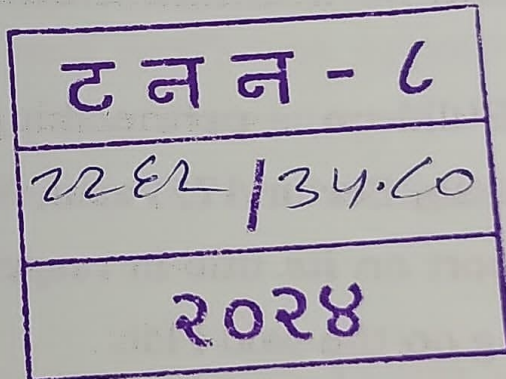 ट न न - ८
२२६२ / ३५.८०
२०२४